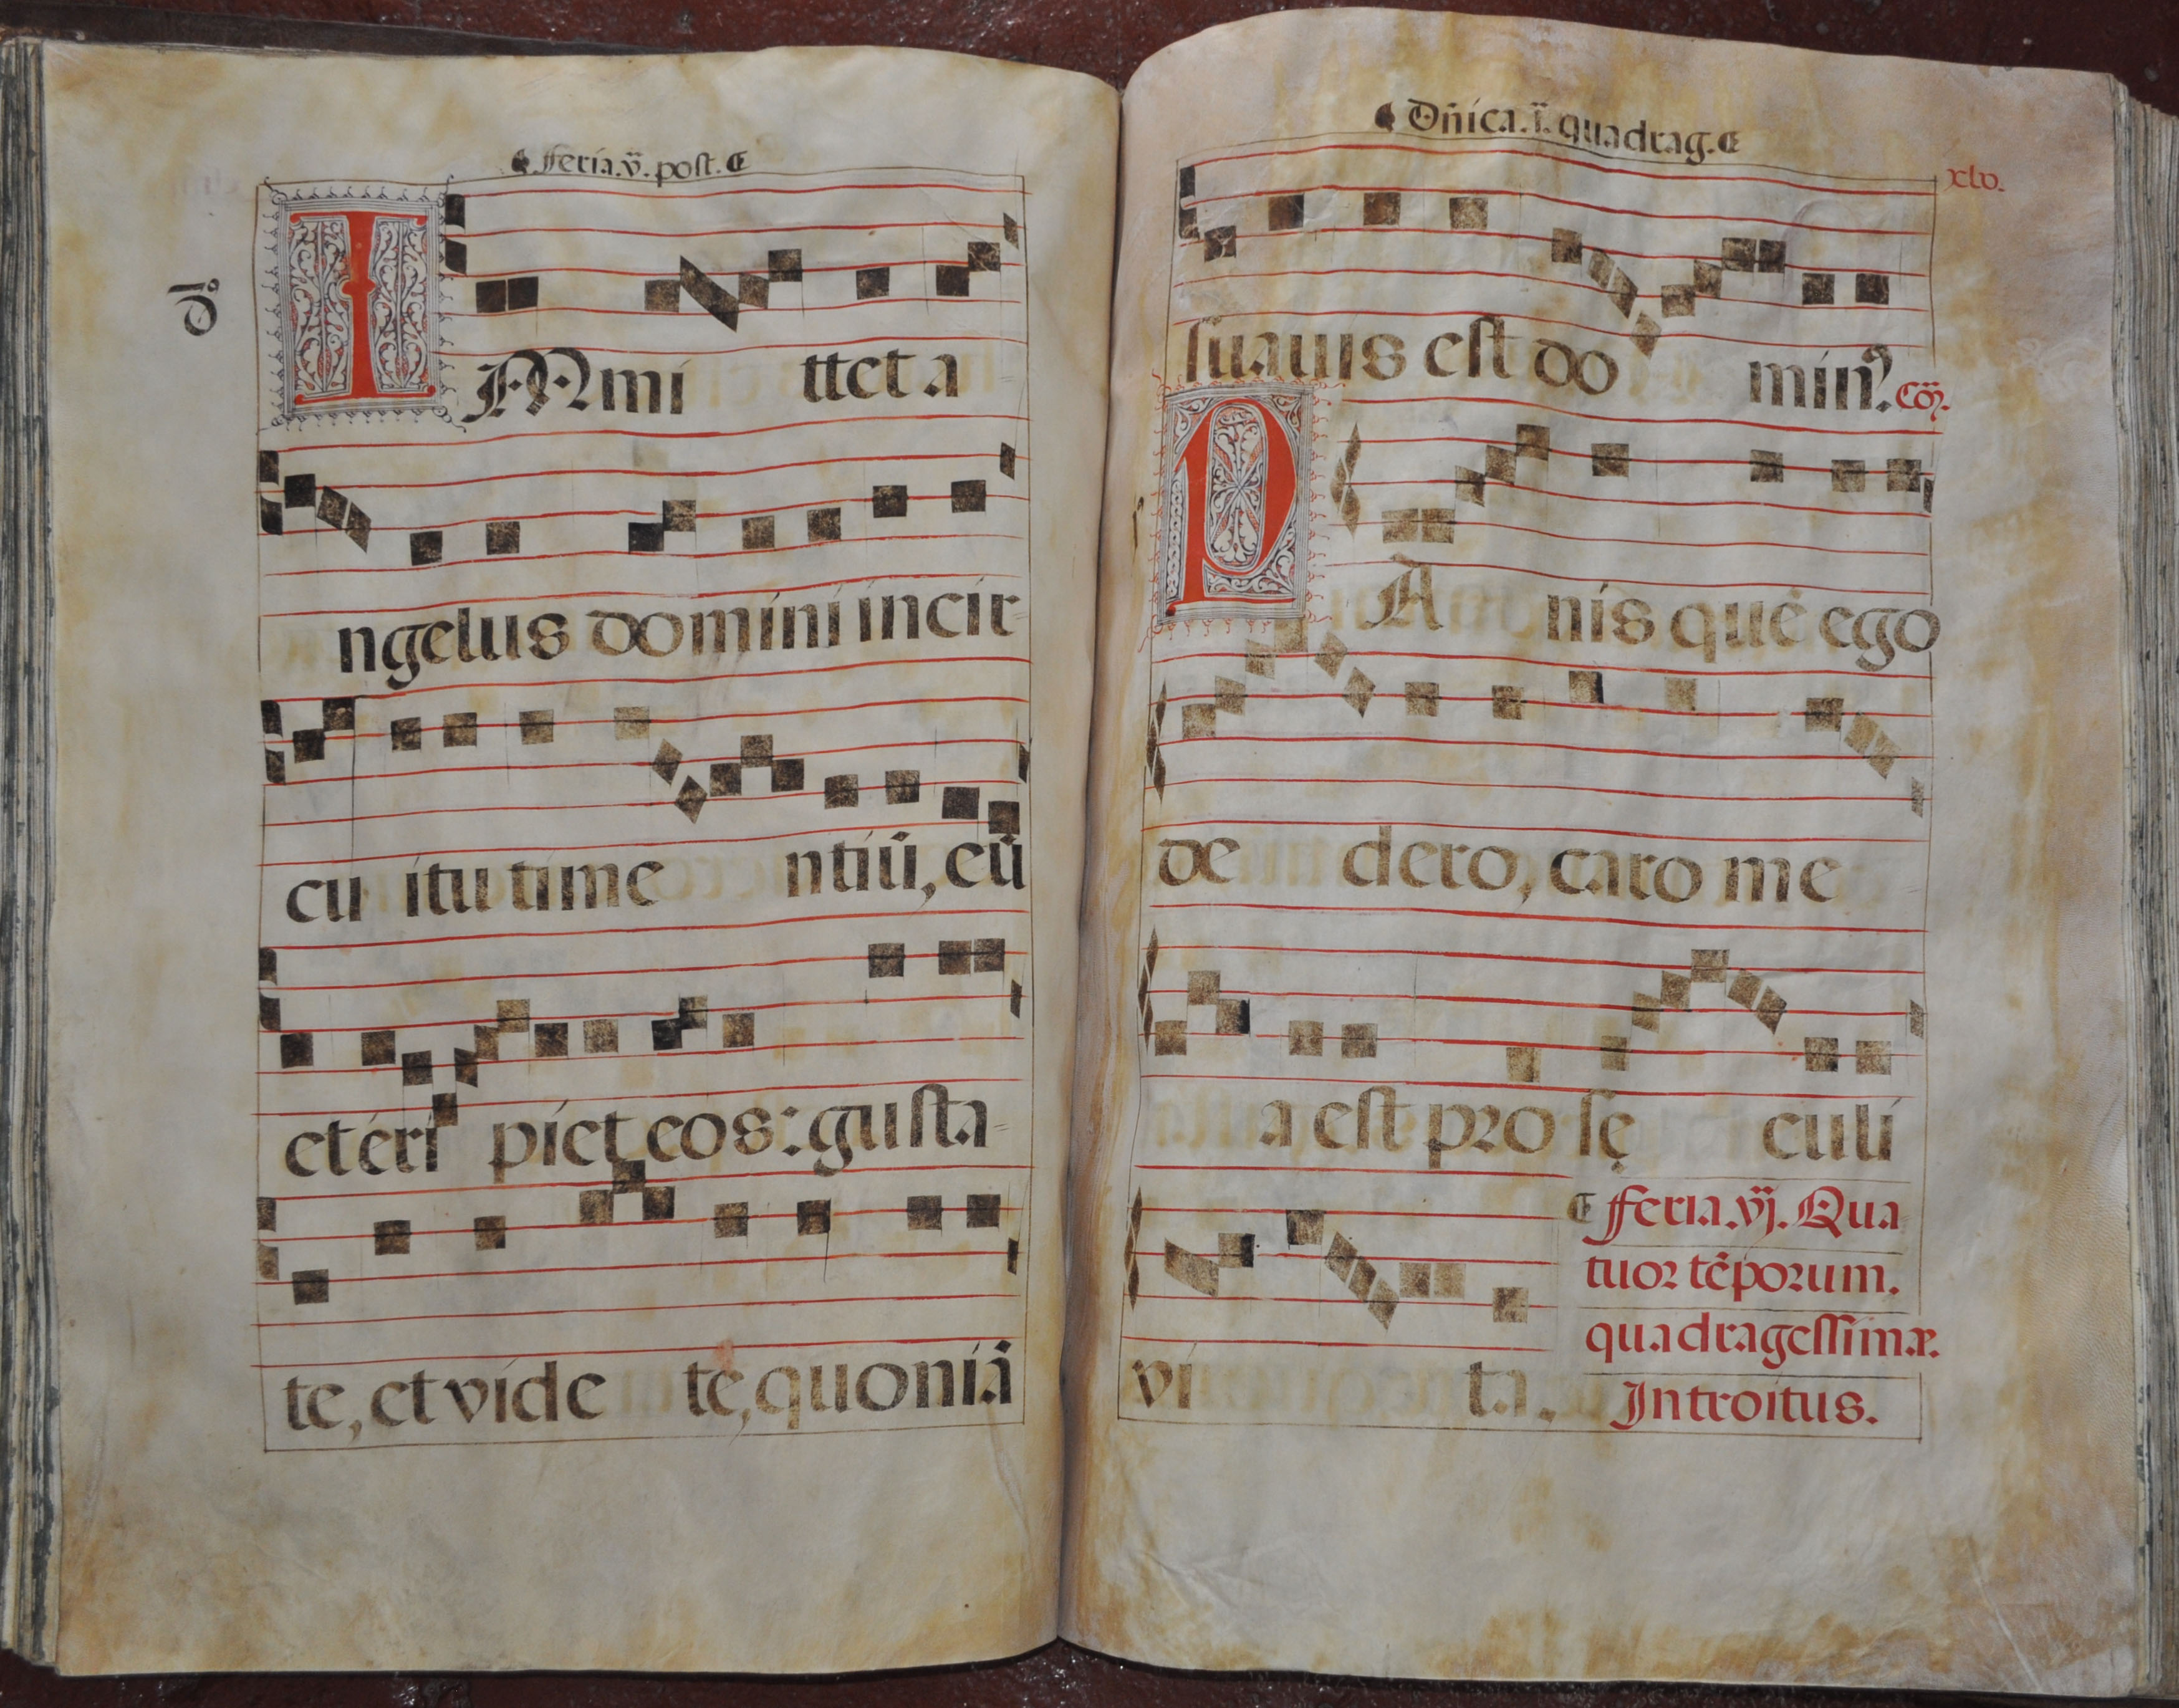 feria. v̈. post.
d.º
IMmi ttet a
ngelus domini incir
cu itu time ntiū, eū
et eri piet eos: gusta
te, et vide te, quoniā
Dñica. ï. quadrag.
xlv.
suavis est do minꝰ. Cōꝫ.
PA nis quē ego
de dero, caro me
a est pro sę culi
vi ta.
feria. vj. Qua
tuor tēporum.
quadragessimæ.
Introitus.